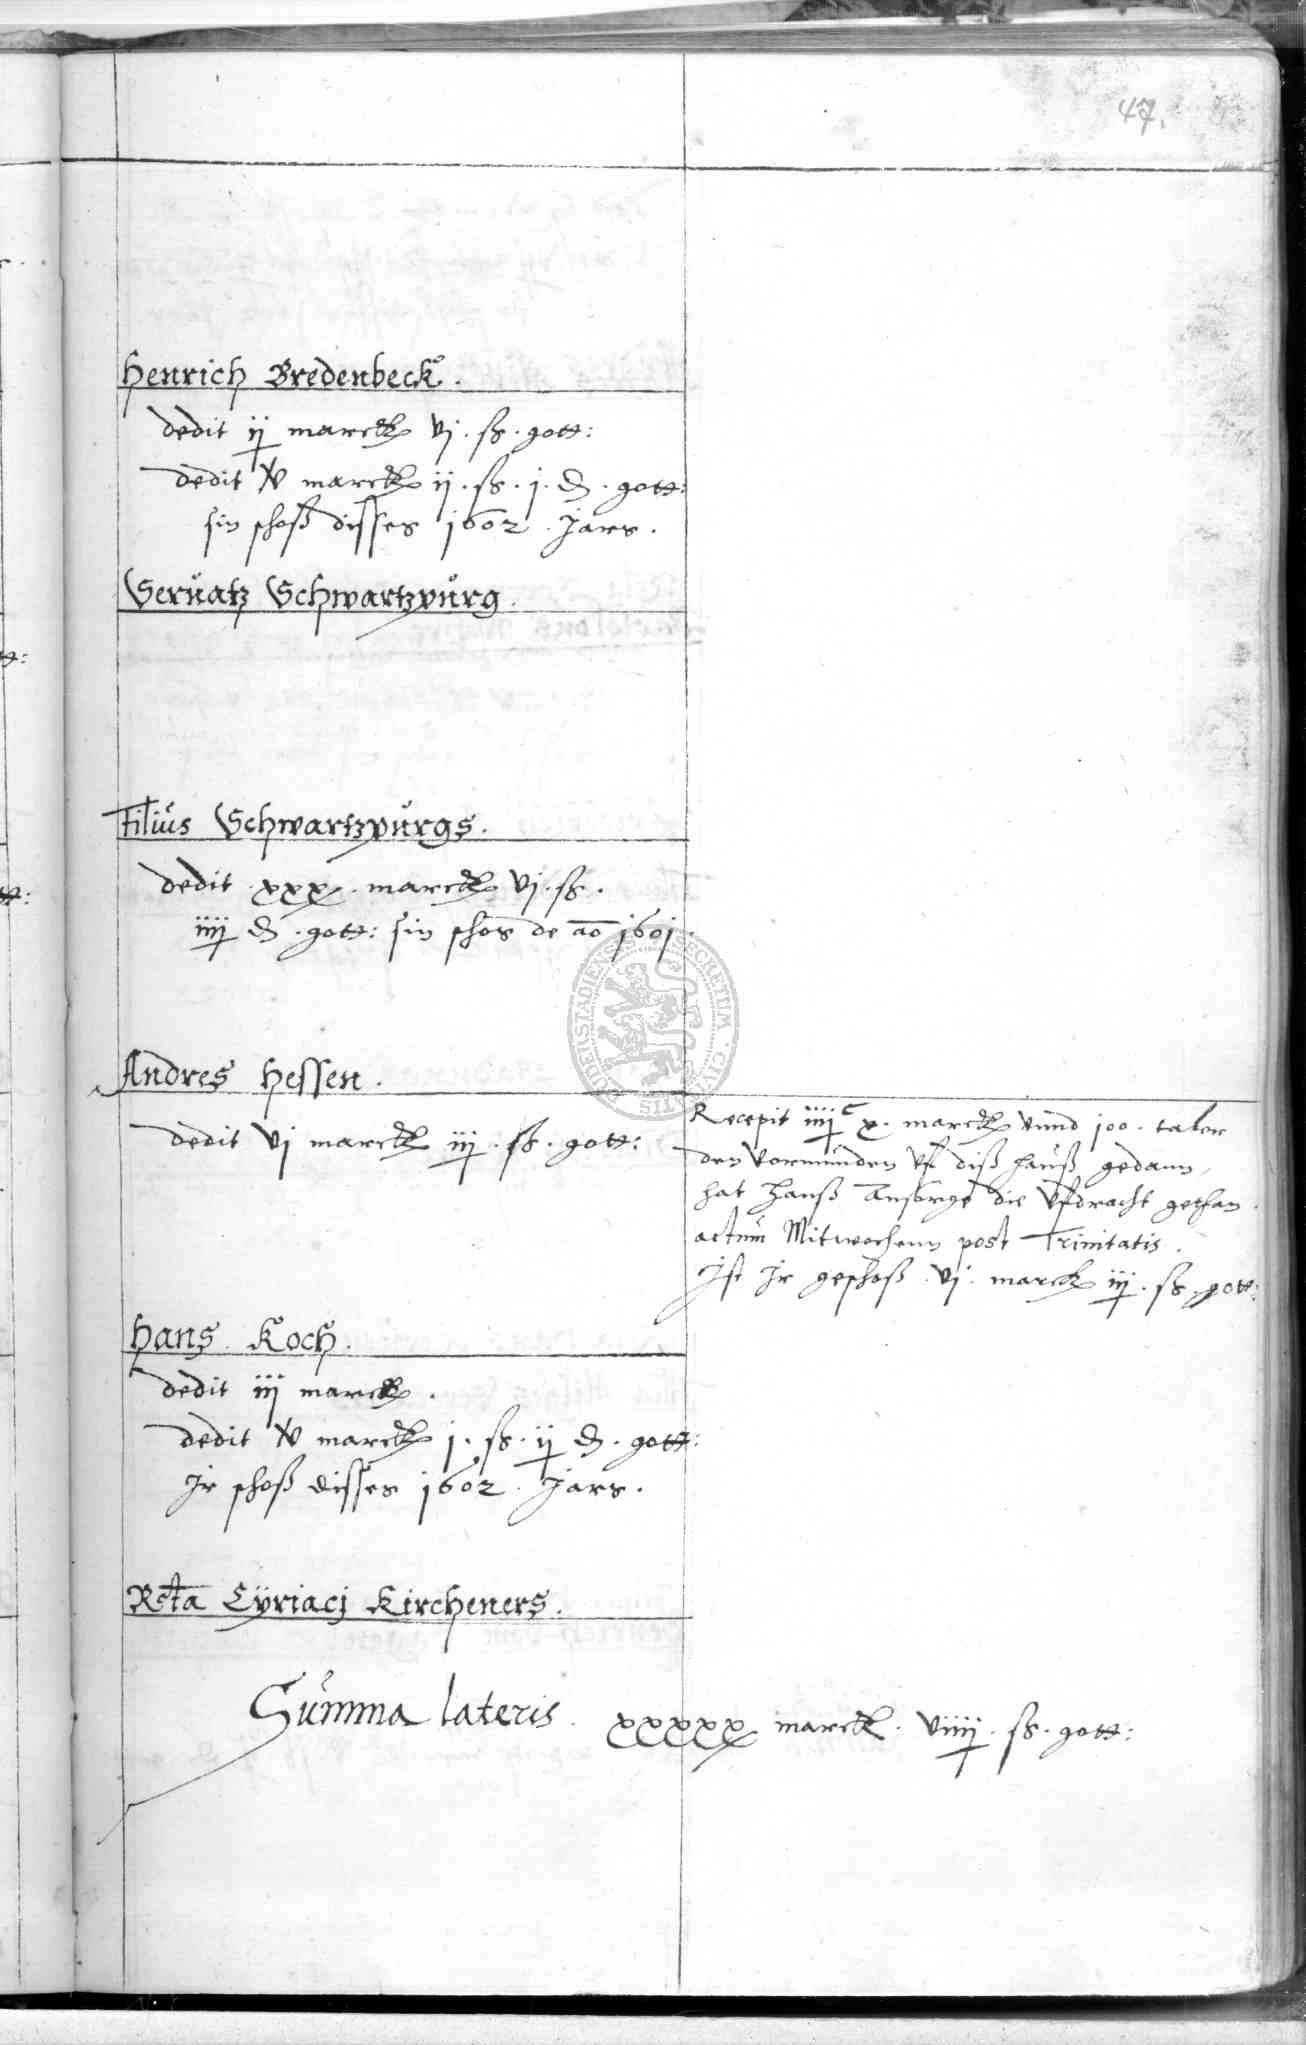 47.
Henrich Bredenbeck.
dedit ij marck vj. ß. gott:
dedit v marck ij. ß. j. d. gott:
sin schoß disses 1602. Jars.
Seruatz Schwartzpurg.
Filius Schwartzpurgs.
dedit xxx. marck vj. ß.
iiij d. gott: sin schos de ao 1601.
Andres Hessen.
dedit vj marck iij. ß. gott:
Recepit iiij c x. marck vnnd 100. taler
den vormunden vf diß hauß gedann,
hat Hanß Ansorge die vfdracht gethan.
actum Mitwochenn post Trinitatis.
Ist Ir geschoß. vj. marck iij. ß. gott:
Hans Koch.
dedit iij marck.
dedit v marck j. ß. ij d. gott:
Ir schoß disses 1602. Jars.
Rcta Cÿriacj Kircheners.
Summa lateris. xxxxx marck. viiij. ß. gott:
SECRETUM CIVITATIS DUDERSTADIENSIS